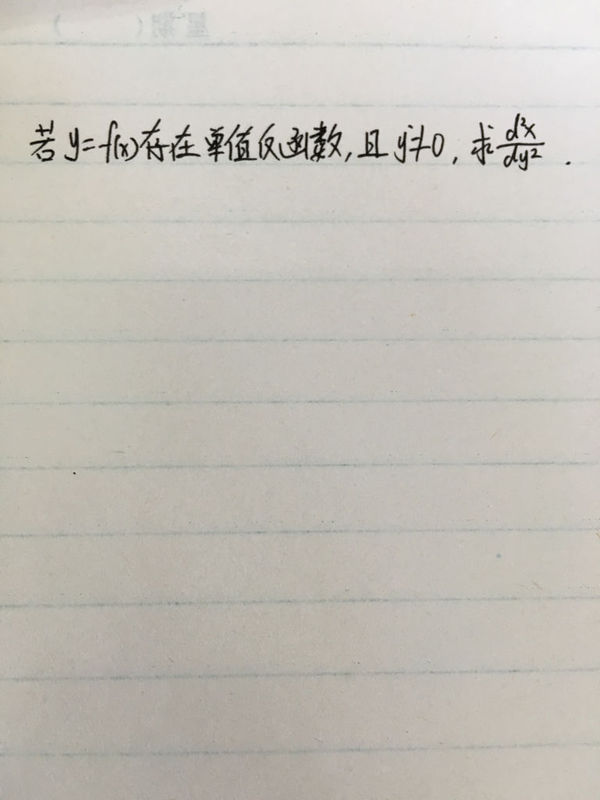 星期( )
若y=f(x)存在单值反函数,且y'≠0,求d²x/dy².